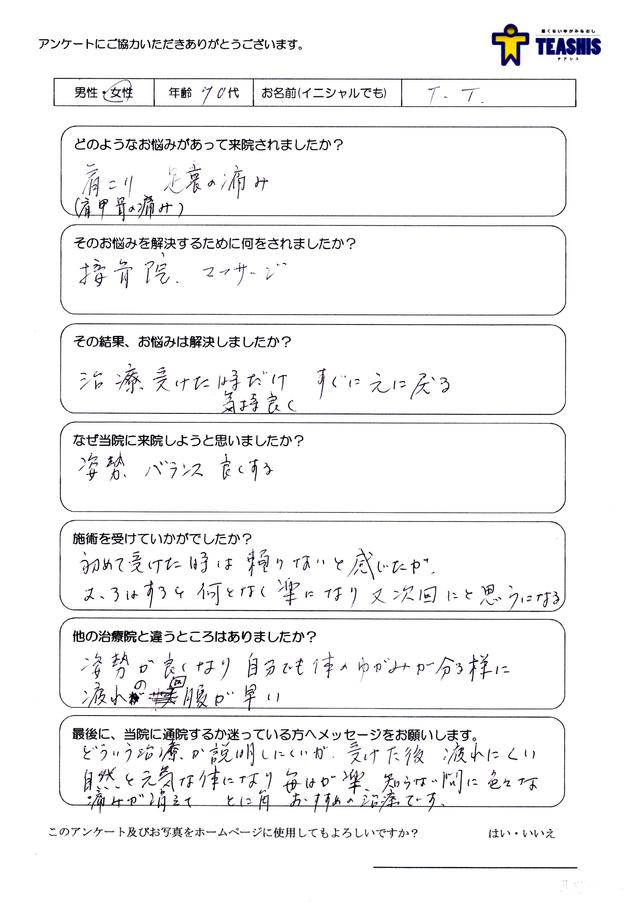 アンケートにご協力いただきありがとうございます。
悪くないゆがみなおし
TEASHIS
テアシス
男性・女性 年齢 70代 お名前(イニシャルでも) T. T.
どのようなお悩みがあって来院されましたか?
肩こり 足裏の痛み
(肩甲骨の痛み)
そのお悩みを解決するために何をされましたか?
接骨院、マッサージ
その結果、お悩みは解決しましたか?
治療受けた時だけ すぐに元に戻る
気持良く
なぜ当院に来院しようと思いましたか?
姿勢 バランス 良くする
施術を受けていかがでしたか?
初めて受けた時は頼りないと感じたが、
何となく楽になり又次回にと思うになる
他の治療院と違うところはありましたか?
姿勢が良くなり 自分でも体のゆがみが分る様に
疲れの回腹が早い
最後に、当院に通院するか迷っている方へメッセージをお願いします。
どういう治療か説明しにくいが、受けた後 疲れにくい
自然と元気な体になり 毎日が楽 知らない間に色々な
痛みが消えて とに角 おすすめの治療です。
このアンケート及びお写真をホームページに使用してもよろしいですか? はい・いいえ